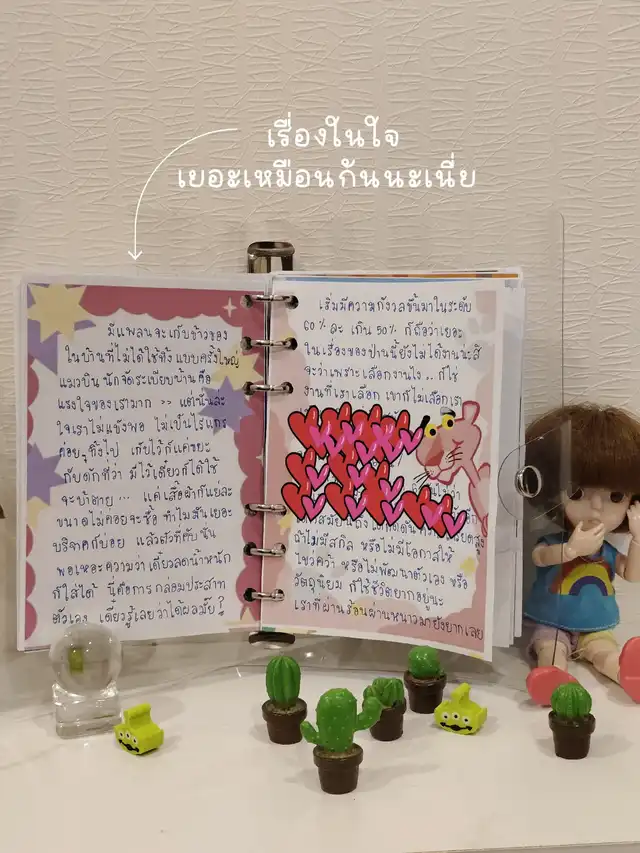 เรื่องในใจ
เยอะเหมือนกันนะเนี่ย
มีแพลนจะเก็บข้าวของ
ในบ้านที่ไม่ได้ใช้ทิ้ง แบบครั้งใหญ่
แมวบิน นักจัดระเบียบบ้านคือ
แรงใจของเรามาก >> แต่นั่นละ
ใจเราไม่แข็งพอ ไม่เป็นไรแกร
ค่อย ๆ ทิ้งไป เก็บไว้ก็แค่ขยะ
กับดักที่ว่า มีไว้เดี๋ยวก็ได้ใช้
จะบ้าตาย ... แค่เสื้อผ้าก็แย่ละ
ขนาดไม่ค่อยจะซื้อ ทำไมมันเยอะ
บริจาคก็บ่อย แล้วตัวที่คับนั้น
พอเหอะความว่าเดี๋ยวลดน้ำหนัก
ก็ใส่ได้ นี่คือการกล่อมประสาท
ตัวเอง เดี๋ยวรู้เลยว่าได้ผลมั้ย?
เริ่มมีความกังวลขึ้นมาในระดับ
60% ละ เกิน 50% ก็ถือว่าเยอะ
ในเรื่องของป่านนี้ยังไม่ได้งานนะสิ
จะว่าเพราะเลือกงานไง .. ก็ใช่
งานที่เราเลือก เขาก็ไม่เลือกเรา
ถ้าไม่มีสกิล หรือไม่มีโอกาสให้
ไขว่คว้า หรือไม่พัฒนาตัวเอง หรือ
วัตถุนิยม ก็ใช้ชีวิตยากอยู่นะ
เราที่ผ่านร้อนผ่านหนาวมายังยากเลย